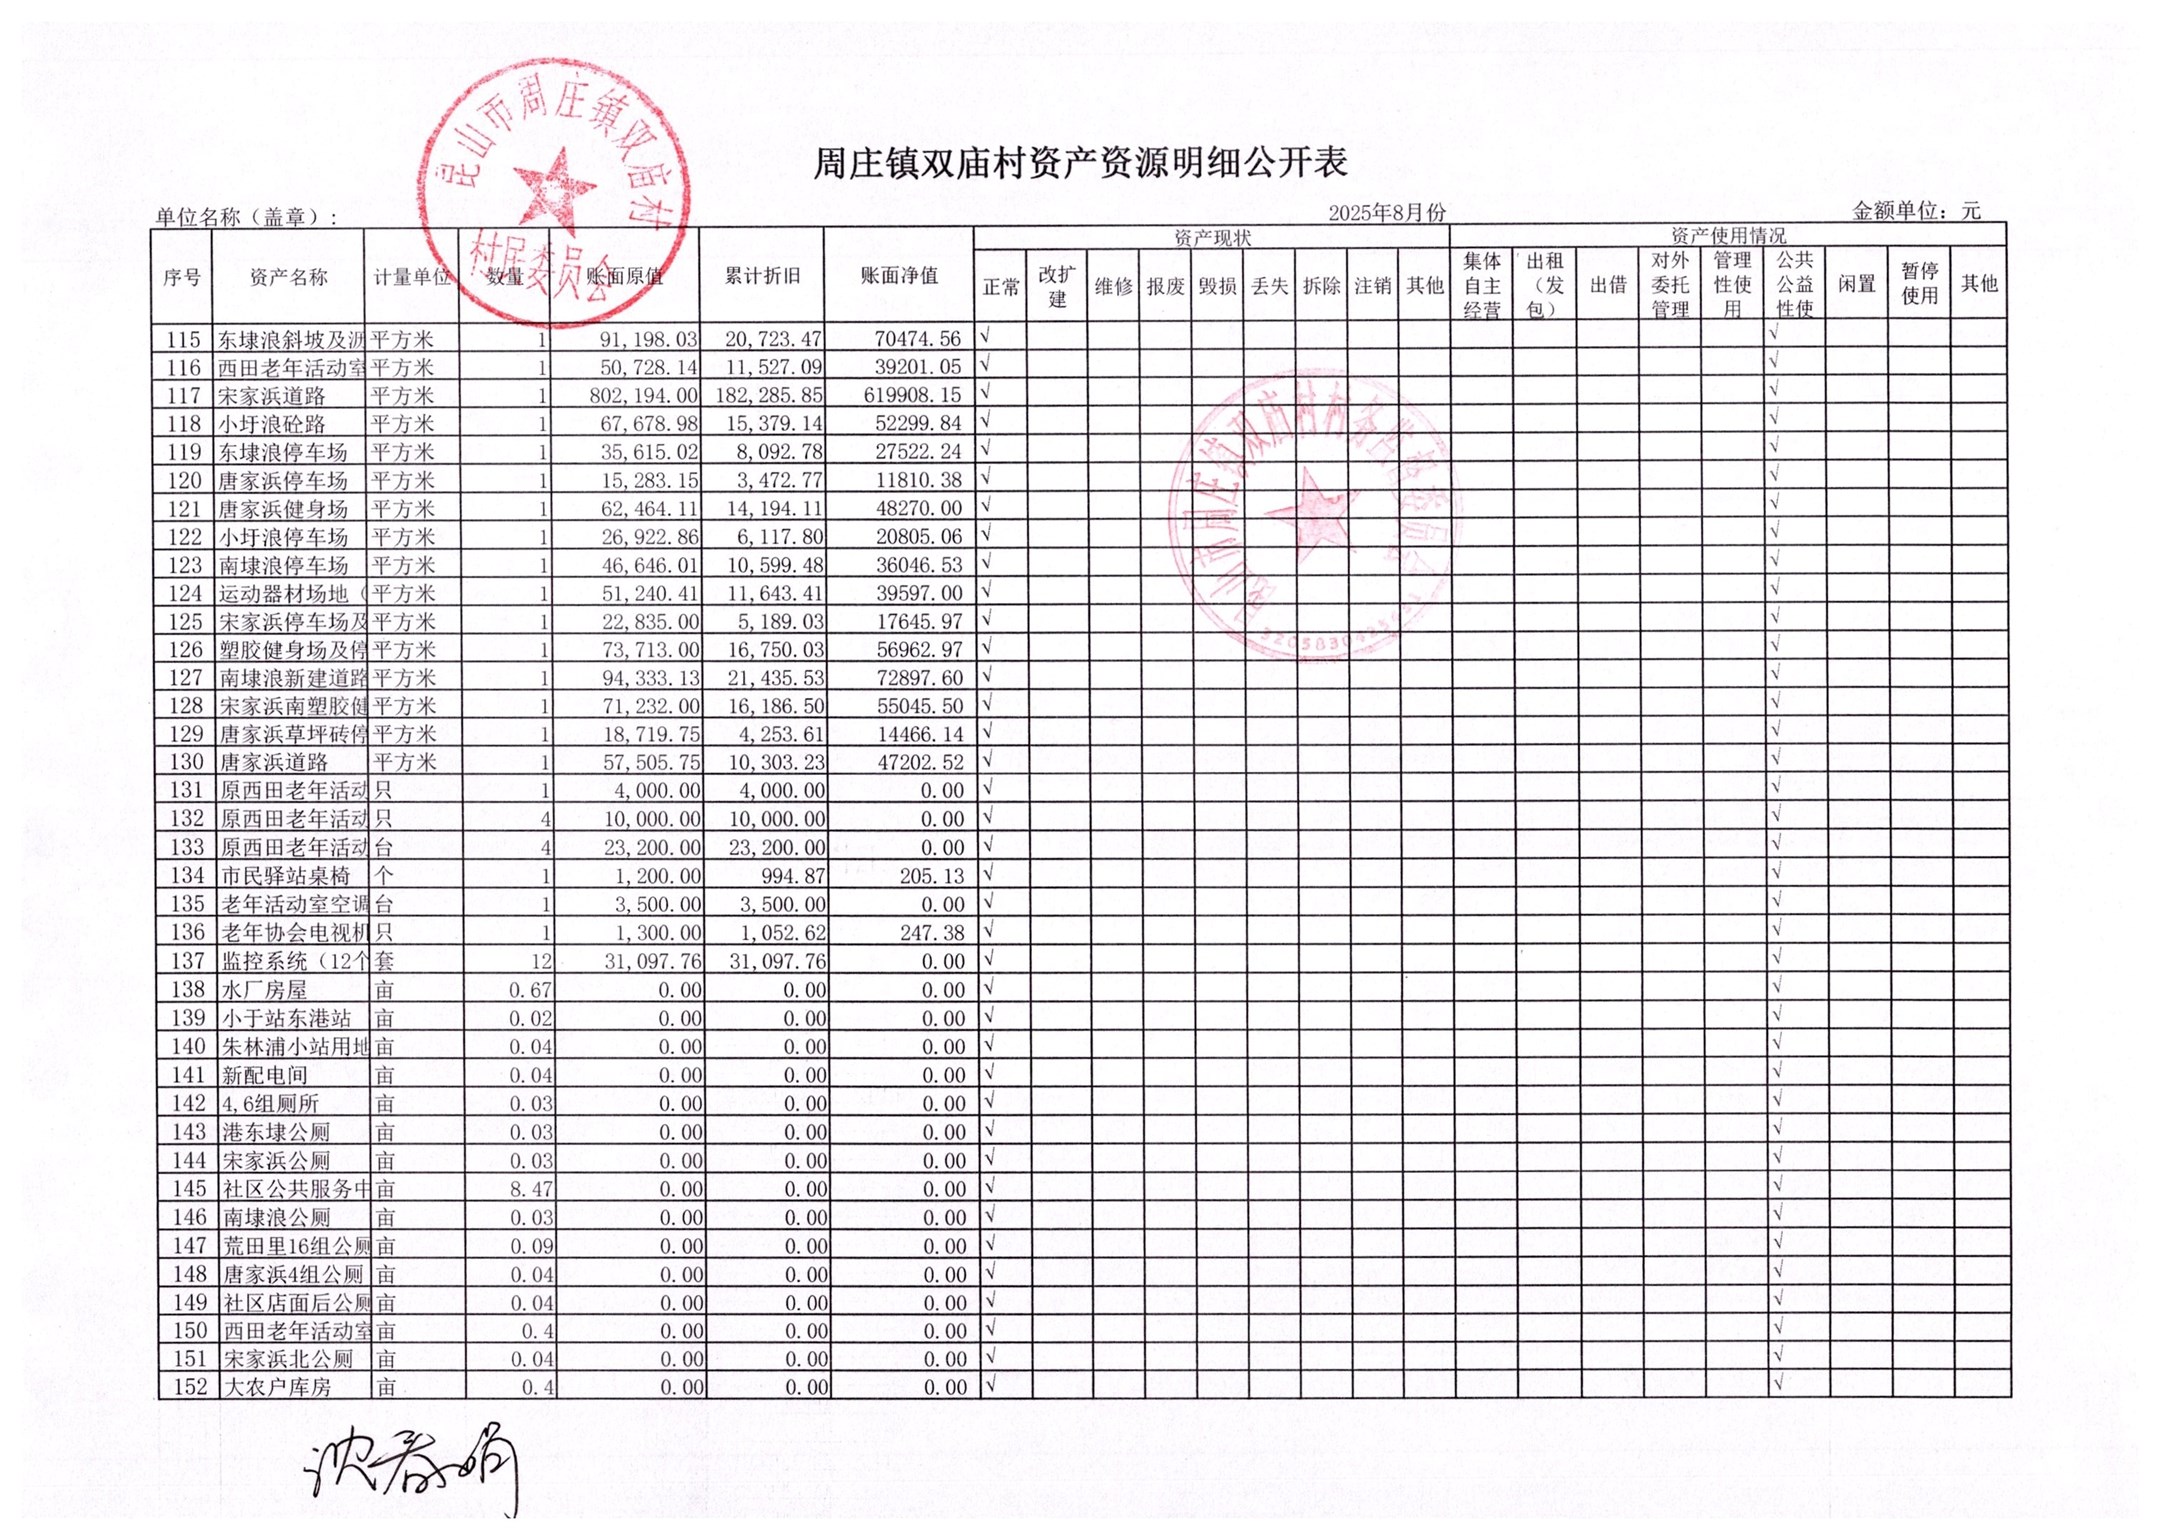 昆山市周庄镇双庙村
村民委员会
周庄镇双庙村资产资源明细公开表
单位名称（盖章）: 2025年8月份 金额单位：元
序号 资产名称 计量单位 数量 账面原值 累计折旧 账面净值 资产现状 资产使用情况
正常 改扩建 维修 报废 毁损 丢失 拆除 注销 其他 集体自主经营 出租（发包） 出借 对外委托管理 管理性使用 公共公益性使 闲置 暂停使用 其他
115 东埭浪斜坡及沥 平方米 1 91,198.03 20,723.47 70474.56 √ √
116 西田老年活动室 平方米 1 50,728.14 11,527.09 39201.05 √ √
117 宋家浜道路 平方米 1 802,194.00 182,285.85 619908.15 √ √
118 小圩浪砼路 平方米 1 67,678.98 15,379.14 52299.84 √ √
119 东埭浪停车场 平方米 1 35,615.02 8,092.78 27522.24 √ √
120 唐家浜停车场 平方米 1 15,283.15 3,472.77 11810.38 √ √
121 唐家浜健身场 平方米 1 62,464.11 14,194.11 48270.00 √ √
122 小圩浪停车场 平方米 1 26,922.86 6,117.80 20805.06 √ √
123 南埭浪停车场 平方米 1 46,646.01 10,599.48 36046.53 √ √
124 运动器材场地（ 平方米 1 51,240.41 11,643.41 39597.00 √ √
125 宋家浜停车场及 平方米 1 22,835.00 5,189.03 17645.97 √ √
126 塑胶健身场及停 平方米 1 73,713.00 16,750.03 56962.97 √ √
127 南埭浪新建道路 平方米 1 94,333.13 21,435.53 72897.60 √ √
128 宋家浜南塑胶健 平方米 1 71,232.00 16,186.50 55045.50 √ √
129 唐家浜草坪砖停 平方米 1 18,719.75 4,253.61 14466.14 √ √
130 唐家浜道路 平方米 1 57,505.75 10,303.23 47202.52 √ √
131 原西田老年活动 只 1 4,000.00 4,000.00 0.00 √ √
132 原西田老年活动 只 4 10,000.00 10,000.00 0.00 √ √
133 原西田老年活动 台 4 23,200.00 23,200.00 0.00 √ √
134 市民驿站桌椅 个 1 1,200.00 994.87 205.13 √ √
135 老年活动室空调 台 1 3,500.00 3,500.00 0.00 √ √
136 老年协会电视机 只 1 1,300.00 1,052.62 247.38 √ √
137 监控系统（12个 套 12 31,097.76 31,097.76 0.00 √ √
138 水厂房屋 亩 0.67 0.00 0.00 0.00 √ √
139 小于站东港站 亩 0.02 0.00 0.00 0.00 √ √
140 朱林浦小站用地 亩 0.04 0.00 0.00 0.00 √ √
141 新配电间 亩 0.04 0.00 0.00 0.00 √ √
142 4,6组厕所 亩 0.03 0.00 0.00 0.00 √ √
143 港东埭公厕 亩 0.03 0.00 0.00 0.00 √ √
144 宋家浜公厕 亩 0.03 0.00 0.00 0.00 √ √
145 社区公共服务中 亩 8.47 0.00 0.00 0.00 √ √
146 南埭浪公厕 亩 0.03 0.00 0.00 0.00 √ √
147 荒田里16组公厕 亩 0.09 0.00 0.00 0.00 √ √
148 唐家浜4组公厕 亩 0.04 0.00 0.00 0.00 √ √
149 社区店面后公厕 亩 0.04 0.00 0.00 0.00 √ √
150 西田老年活动室 亩 0.4 0.00 0.00 0.00 √ √
151 宋家浜北公厕 亩 0.04 0.00 0.00 0.00 √ √
152 大农户库房 亩 0.4 0.00 0.00 0.00 √ √
昆山市周庄镇双庙村村务监督委员会
沈春娟